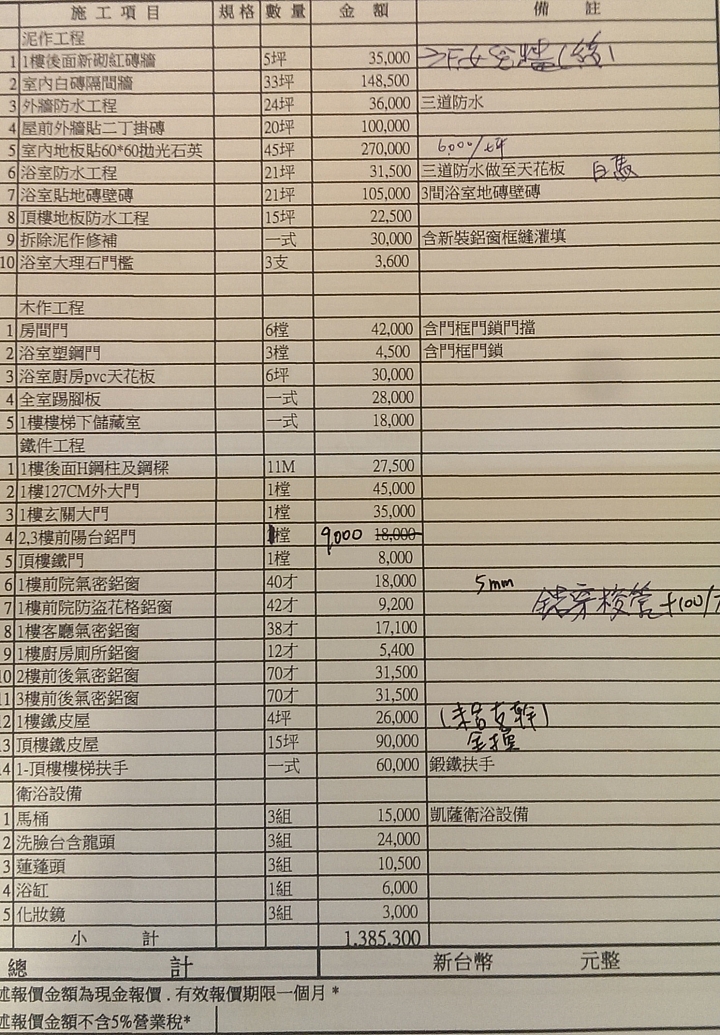 施工項目 規格 數量 金額 備註
泥作工程
1 1樓後面新砌紅磚牆 5坪 35,000
2 室內白磚隔間牆 33坪 148,500
3 外牆防水工程 24坪 36,000 三道防水
4 屋前外牆貼二丁掛磚 20坪 100,000
5 室內地板貼60*60拋光石英 45坪 270,000 6000/坪
6 浴室防水工程 21坪 31,500 三道防水做至天花板 白馬
7 浴室貼地磚壁磚 21坪 105,000 3間浴室地磚壁磚
8 頂樓地板防水工程 15坪 22,500
9 拆除泥作修補 一式 30,000 含新裝鋁窗框縫灌填
10 浴室大理石門檻 3支 3,600
木作工程
1 房間門 6樘 42,000 含門框門鎖門擋
2 浴室塑鋼門 3樘 4,500 含門框門鎖
3 浴室廚房pvc天花板 6坪 30,000
4 全室踢腳板 一式 28,000
5 1樓樓梯下儲藏室 一式 18,000
鐵件工程
1 1樓後面H鋼柱及鋼樑 11M 27,500
2 1樓127CM外大門 1樘 45,000
3 1樓玄關大門 1樘 35,000
4 2,3樓前陽台鋁門 1樘 9,000 18,000
5 頂樓鐵門 1樘 8,000
6 1樓前院氣密鋁窗 40才 18,000 5mm
7 1樓前院防盜花格鋁窗 42才 9,200 +100/
8 1樓客廳氣密鋁窗 38才 17,100
9 1樓廚房廁所鋁窗 12才 5,400
10 2樓前後氣密鋁窗 70才 31,500
11 3樓前後氣密鋁窗 70才 31,500
12 1樓鐵皮屋 4坪 26,000
13 頂樓鐵皮屋 15坪 90,000
14 1-頂樓樓梯扶手 一式 60,000 鍛鐵扶手
衛浴設備
1 馬桶 3組 15,000 凱薩衛浴設備
2 洗臉台含龍頭 3組 24,000
3 蓮蓬頭 3組 10,500
4 浴缸 1組 6,000
5 化妝鏡 3組 3,000
小計 1,385,300
總計 新台幣 元整
述報價金額為現金報價.有效報價期限一個月*
述報價金額不含5%營業稅*